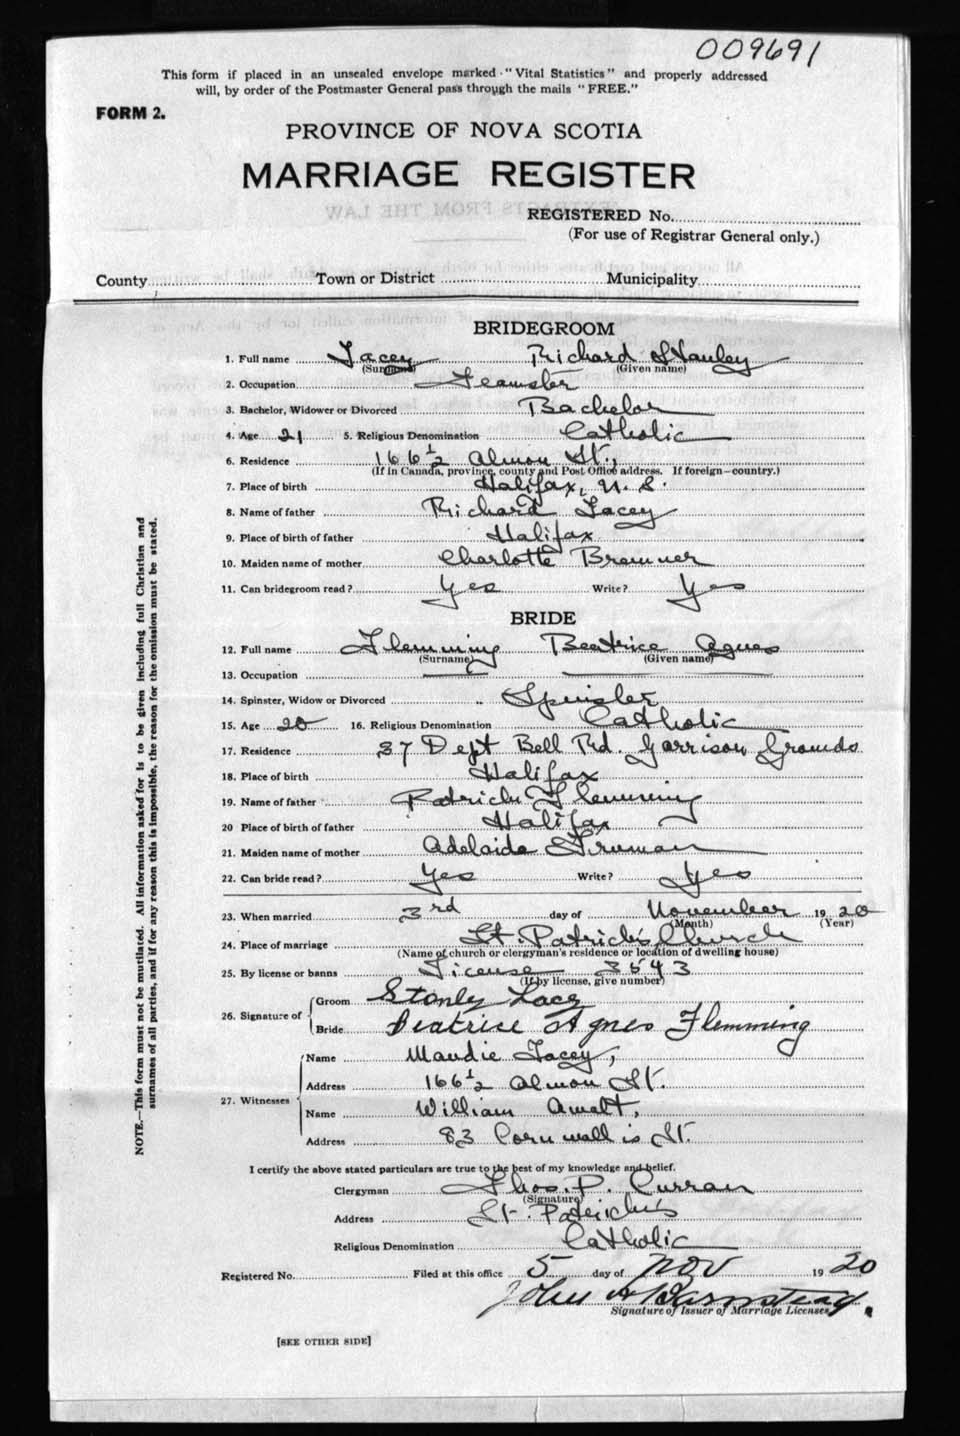 009691
This form if placed in an unsealed envelope marked "Vital Statistics" and properly addressed
will, by order of the Postmaster General pass through the mails "FREE."
FORM 2.
PROVINCE OF NOVA SCOTIA
MARRIAGE REGISTER
REGISTERED No.
(For use of Registrar General only.)
County Town or District Municipality
BRIDEGROOM
1. Full name Lacey Richard Stanley
(Surname) (Given name)
2. Occupation Teamster
3. Bachelor, Widower or Divorced Bachelor
4. Age 21 5. Religious Denomination Catholic
6. Residence 166½ Almon St.,
(If in Canada, province, county and Post Office address. If foreign—country.)
7. Place of birth Halifax, N. S.
8. Name of father Richard Lacey
9. Place of birth of father Halifax
10. Maiden name of mother Charlotte Bremner
11. Can bridegroom read? Yes Write? Yes
BRIDE
12. Full name Flemming Beatrice Agnes
(Surname) (Given name)
13. Occupation
14. Spinster, Widow or Divorced Spinster
15. Age 20 16. Religious Denomination Catholic
17. Residence 37 Dept Bell Rd. Garrison Grounds
18. Place of birth Halifax
19. Name of father Patrick Flemming
20 Place of birth of father Halifax
21. Maiden name of mother Adelaide Truman
22. Can bride read? Yes Write? Yes
23. When married 3rd day of November 1920
(Month) (Year)
24. Place of marriage St. Patrick's Church
(Name of church or clergyman's residence or location of dwelling house)
25. By license or banns License 3543
(If by license, give number)
26. Signature of Groom Stanly Lacey
Bride Beatrice Agnes Flemming
27. Witnesses
Name Maudie Lacey,
Address 166½ Almon St.
Name William Awalt,
Address 83 Cornwallis St.
I certify the above stated particulars are true to the best of my knowledge and belief.
Clergyman Thos. P. Curran
(Signature)
Address St. Patrick's
Religious Denomination Catholic
Registered No. Filed at this office 5 day of Nov 1920
John A Barnstead.
Signature of Issuer of Marriage Licenses
[SEE OTHER SIDE]
NOTE.—This form must not be mutilated. All information asked for is to be given including full Christian and
surnames of all parties, and if for any reason this is impossible, the reason for the omission must be stated.